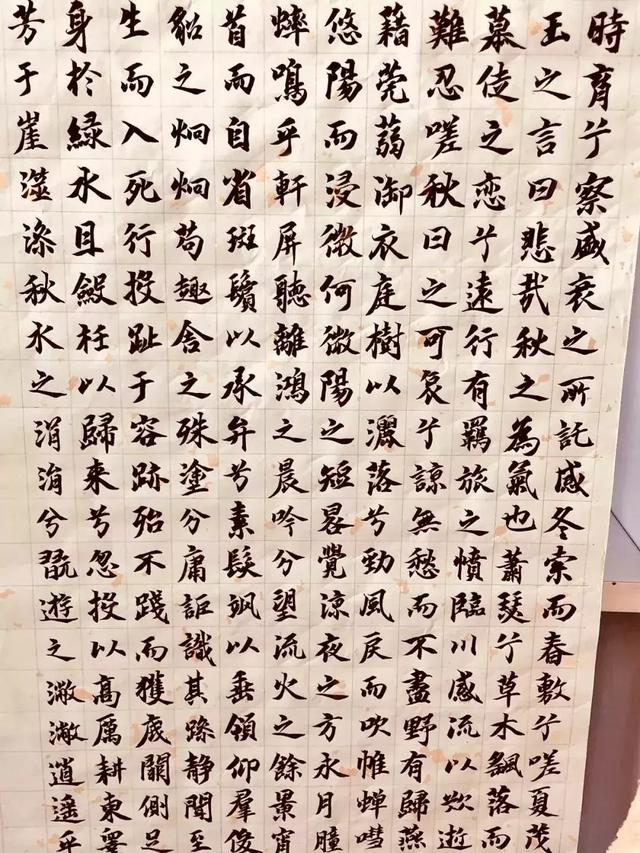 時育兮察盛衰之所託感冬索而春敷兮嗟夏茂
玉之言曰悲哉秋之為氣也蕭瑟兮草木飄落而
慕徒之恋兮遠行有羈旅之憤臨川感流以歎逝
難忍嗟秋日之可哀兮諒無愁而不盡野有歸燕
藉莞蒻御衣庭樹以灑落兮勁風戾而吹帷蟬嘒
悠陽而浸微何微陽之短晷覺涼夜之方永月朣
蟀鳴乎軒屏聽離鴻之晨吟兮望流火之餘景宵
首而自省斑鬢以承弁兮素髮颯以垂領仰羣俊
貂之炯炯苟趣舍之殊塗兮庸詎識其躁静聞至
生而入死行投趾于容跡殆不踐而獲底關側足
身於緑水且斂衽以歸来兮忽投以高厲耕東皋
芳于崖澨澡秋水之涓涓兮翫遊之潎潎逍遥乎